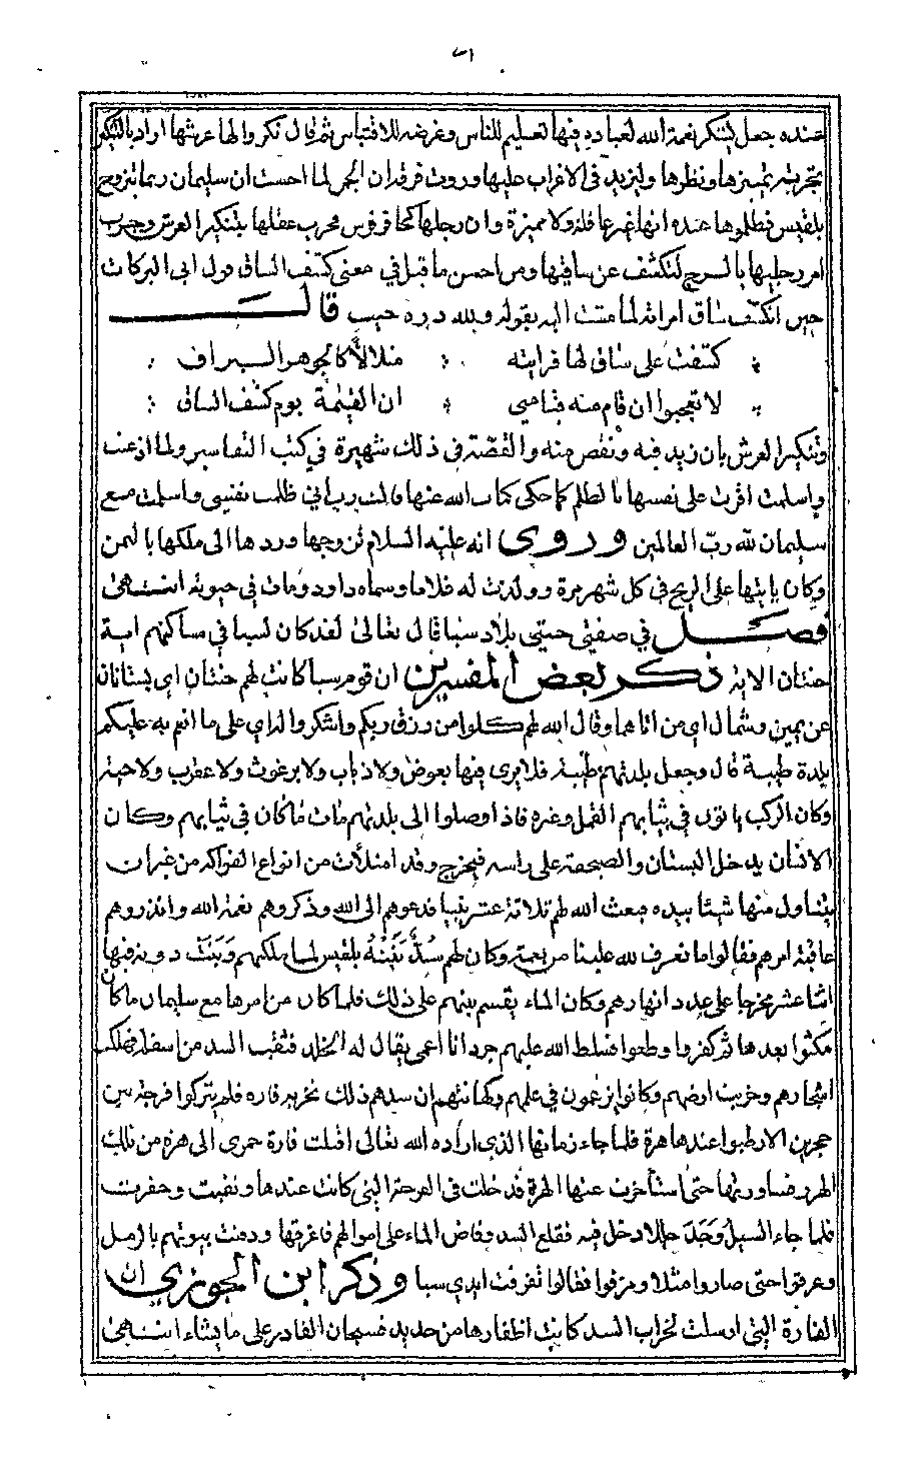 عنده جعل ليتنكر نعمة الله لعباده فيها تعليم للناس وغرضه للاقتباس ثم قال نكروا لها عرشها اراد بالتنكير
تجربة تميزها ونظرها وليزيد في الاغراب عليها وروت فرقة ان الجن لما احست ان سليمان ربما يتزوج
بلقيس فظلموها عنده انها غير عاقلة ولا مميزة وان رجلها كحافر فرس فجرب عقلها بتنكير العرش وجرب
امر رجليها بالسرح لتكشف عن ساقيها ومن احسن ما قيل في معنى كشف الساق قول ابي البركات
حين انكشف ساق امراته لما مشت اليه بقوله ولله دره حيث قالــــــ
كشفت على ساق لها فرايته مثلالأ كالجوهر البراق
لا تعجبوا ان قام منه قيامتي ان القيمة يوم كشف الساق
وتنكير العرش بان زيد فيه ونقص منه والقصة في ذلك شهيرة في كتب التفاسير ولما اذعنت
واسلمت اقرت على نفسها بالظلم كما حكى كتاب الله عنها قالت رب اني ظلمت نفسي واسلمت مع
سليمان لله رب العالمين وروي انه عليه السلام تزوجها وردها الى ملكها باليمن
وكان ياتيها على الريح في كل شهر مرة وولدت له غلاما وسماه داود ومات في حيوته انتهى
فصل في صفتي جنتي بلاد سبا قال تعالى لقد كان لسبا في مساكنهم اية
جنتان الاية ذكر بعض المفسرين ان قوم سبا كانت لهم جنتان اي بستانان
عن يمين وشمال اي من اتاهما وقال الله لهم كلوا من رزق ربكم واشكروا له اي على ما انعم به عليكم
بلدة طيبة قال وجعل بلدتهم طيبة فلا يرى فيها بعوض ولا ذباب ولا برغوث ولا عقرب ولا حية
وكان الركب ياتون في ثيابهم القمل وغيره فاذا وصلوا الى بلدتهم مات ما كان في ثيابهم وكان
الانسان يدخل البستان والصحفة على راسه فيخرج وقد امتلأت من انواع الفواكه من غير ان
يتناول منها شيئا بيده فبعث الله لهم ثلاثة عشر نبيا فدعوهم الى الله وذكروهم نعمة الله وانذروهم
عاقبة امرهم فقالوا ما نعرف لله علينا من نعمة وكان لهم سُدٌّ بَنَتْهُ بلقيس لما ملكهم وَبَنَتْ دونه فيها
اثنا عشر مخرجا على عدد انهارهم وكان الماء يقسم بينهم على ذلك فلما كان من امرها مع سليمان ما كان
مكثوا بعدها ثم كفروا وطغوا فسلط الله عليهم جرذانا اعمى يقال له الخلد فثقب السد من اسفله فهلكت
اشجارهم وخربت ارضهم وكانوا يزعمون في علمهم وكهانتهم ان سدهم ذلك تخربه فاره فلم يتركوا فرجة بين
حجرين الا ربطوا عندها هرة فلما جاء زمانها الذي اراده الله تعالى اقبلت فارة حمرى الى هرة من تلك
الهرر فساورتها حتى استأخرت عنها الهرة فدخلت في الفرجة التي كانت عندها ونقبت وحفرت
فلما جاء السيل وَجَدَ خللا دخل فيه فقلع السد وفاض الماء على اموالهم فاغرقها ودفنت بيوتهم بالرمل
وغرقوا حتى صاروا مثلا ومزقوا فقالوا تفرقت ايدي سبا وذكر ابن الجوزي ان
الفارة التي ارسلت لخراب السد كانت اظفارها من حديد فسبحان القادر على ما يشاء انتهى